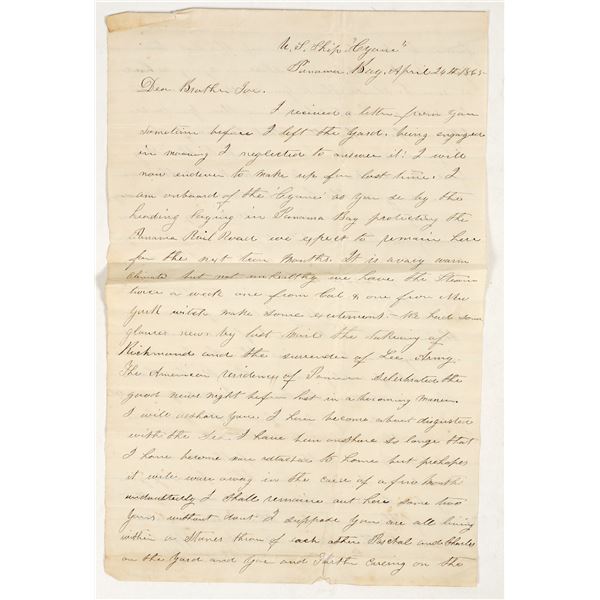 U. S. Ship "Cyane"
Panama Bay, April 24th 1865
Dear Brother Joe.
I recieved a letter from you
sometime before I left the Yard. being engaged
in moving I neglected to answer it: I will
now endever to make up for lost time. I
am onboard of the 'Cyane' as you se by the
heading laying in Panama Bay protecting the
Panama Rail Road we expect to remain here
for the next Months. It is avary warm
climate but not unhealthy we have the Steam
twice a week one from Cal & one from New
York witch make some excitement. We had some
glories news by last Mail the takeing of
Richmond and the surrender of Lee Army.
The American residences of Panama selebrated the
good news night before last in a becoming maner.
I will ashure you. I have become about disgusted
with the Sea. I have been onshore so longe that
I have become more attache to home but prehapes
it will ware away in the corse of a few months
undoubtedly I shall remaine out here some two
years without dout I suppose you are all living
within a Stones thron of each other Paschal and Charles
on the Yard and you and careing on the